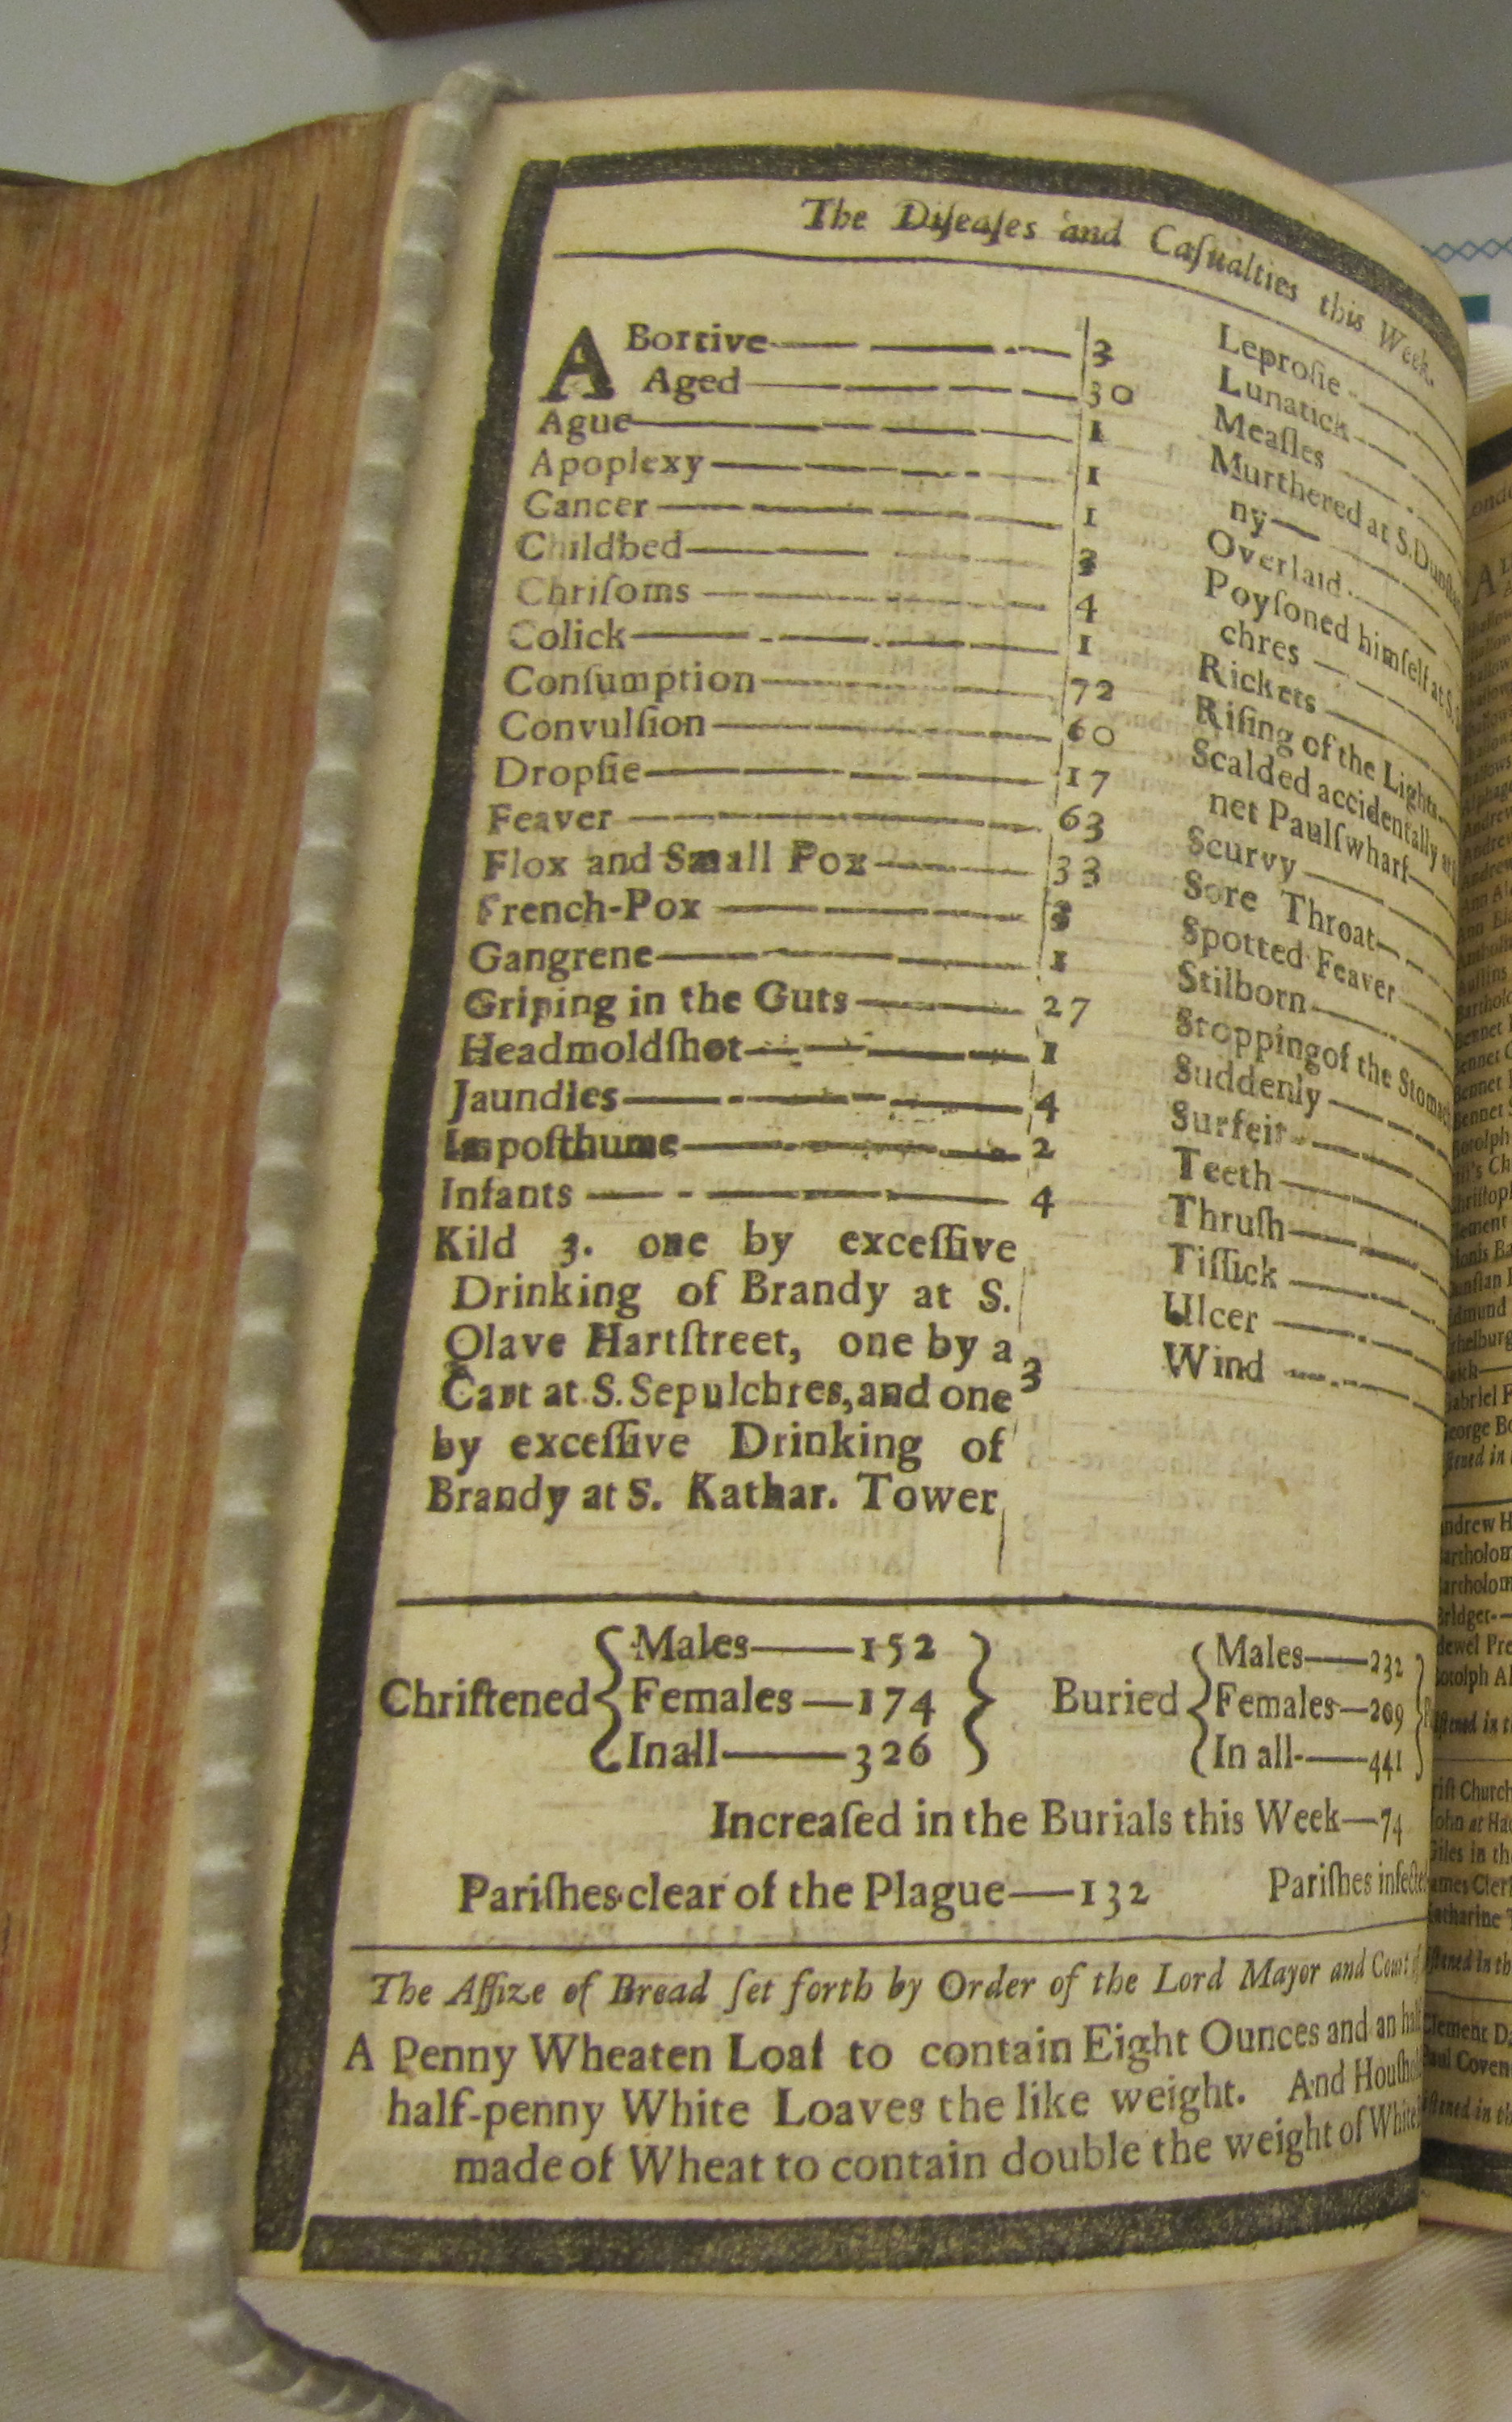 The Diſeaſes and Caſualties this Week.
ABortive 3
Aged 30
Ague 1
Apoplexy 1
Cancer 1
Childbed 3
Chriſoms 4
Colick 1
Conſumption 72
Convulſion 60
Dropſie 17
Feaver 63
Flox and Small Pox 33
French-Pox 3
Gangrene 1
Griping in the Guts 27
Headmoldſhot 1
Jaundies 4
Impoſthume 2
Infants 4
Kild 3. one by exceſſive
Drinking of Brandy at S.
Olave Hartſtreet, one by a
Cart at S. Sepulchres, and one 3
by exceſſive Drinking of
Brandy at S. Kathar. Tower
Leproſie
Lunatick
Meaſles
Murthered at S. Dunſtan
ny
Overlaid
Poyſoned himſelf at S.
chres
Rickets
Riſing of the Lights
Scalded accidentally at
net Paulſwharf
Scurvy
Sore Throat
Spotted Feaver
Stilborn
Stopping of the Stomach
Suddenly
Surfeit
Teeth
Thruſh
Tiſſick
Ulcer
Wind
Chriſtened { Males—152
Females—174
In all—326 }
Buried { Males—232
Females—209
In all—441 }
Increaſed in the Burials this Week—74
Pariſhes clear of the Plague—132 Pariſhes infected
The Aſſize of Bread ſet forth by Order of the Lord Mayor and Court
A Penny Wheaten Loaf to contain Eight Ounces and an half
half-penny White Loaves the like weight. And
made of Wheat to contain double the weight of White